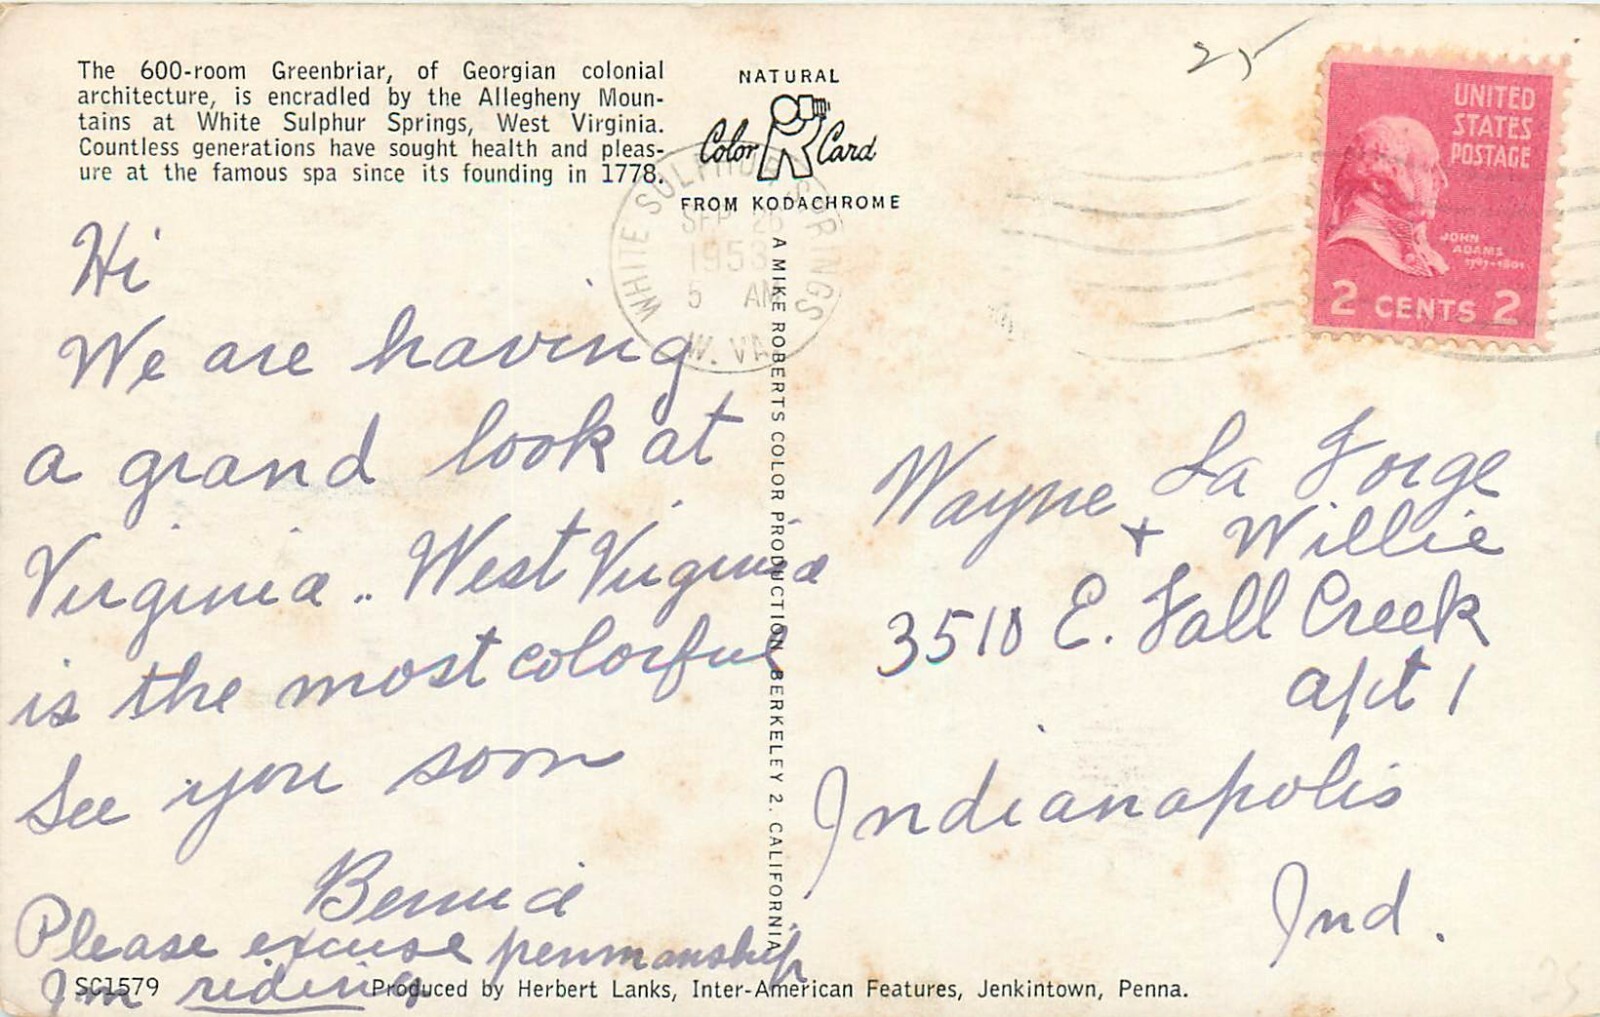 The 600-room Greenbriar, of Georgian colonial
architecture, is encradled by the Allegheny Moun-
tains at White Sulphur Springs, West Virginia.
Countless generations have sought health and pleas-
ure at the famous spa since its founding in 1778.
NATURAL
Color Card
FROM KODACHROME
25
UNITED
STATES
POSTAGE
JOHN
ADAMS
1797-1801
2 CENTS 2
WHITE SULPHUR SPRINGS
SEP 26
1953
5 AM
W. VA.
A MIKE ROBERTS COLOR PRODUCTION BERKELEY 2. CALIFORNIA
Hi
We are having
a grand look at
Virginia .. West Virginia
is the most colorful
See you soon
Please excuse penmanship
I'm riding
Wayne La Forge
+ Willie
3510 E. Fall Creek
apt 1
Indianapolis
Ind.
SC1579
Produced by Herbert Lanks, Inter-American Features, Jenkintown, Penna.
25